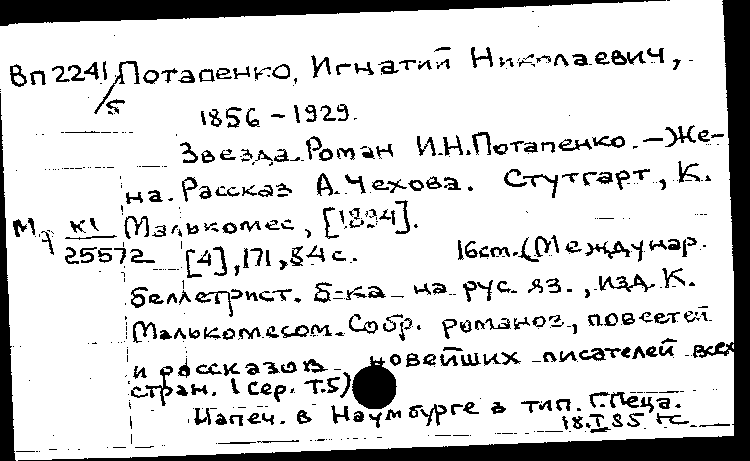 Вп 2241/5 Потапенко, Игнатий Николаевич,
1856 – 1929.
Звезда. Роман И.Н.Потапенко. – Же-
на. Рассказ А.Чехова. Стутгарт, К.
Малькомес, [1894].
К1
25572
[4], 171, 84 с. 16cm. (Междунар.
беллетрист. б-ка на рус. яз., изд. К.
Малькомесом. Собр. романов, повестей
и рассказов новейших писателей всех
стран. 1 сер. Т.5)
Напеч. в Наумбурге в тип. Г.Пеца.
18.I 85 гс